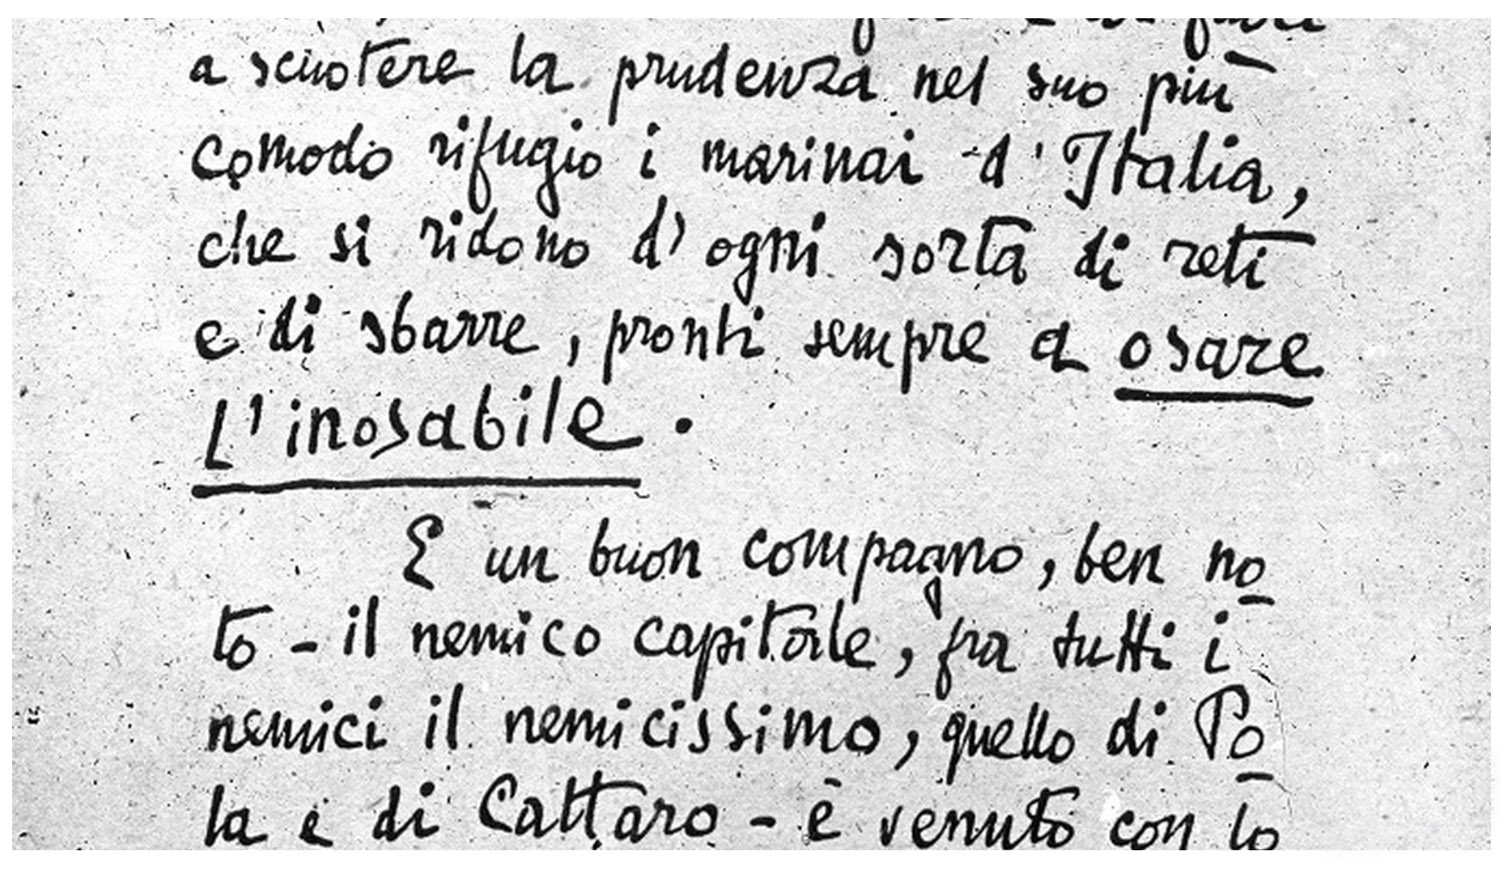 a scuotere la prudenza nel suo più
comodo rifugio i marinai d'Italia,
che si ridono d'ogni sorta di reti
e di sbarre, pronti sempre a osare
l'inosabile.
E un buon compagno, ben no
to - il nemico capitale, fra tutti i
nemici il nemicissimo, quello di Po
la e di Cattaro - è venuto con lo